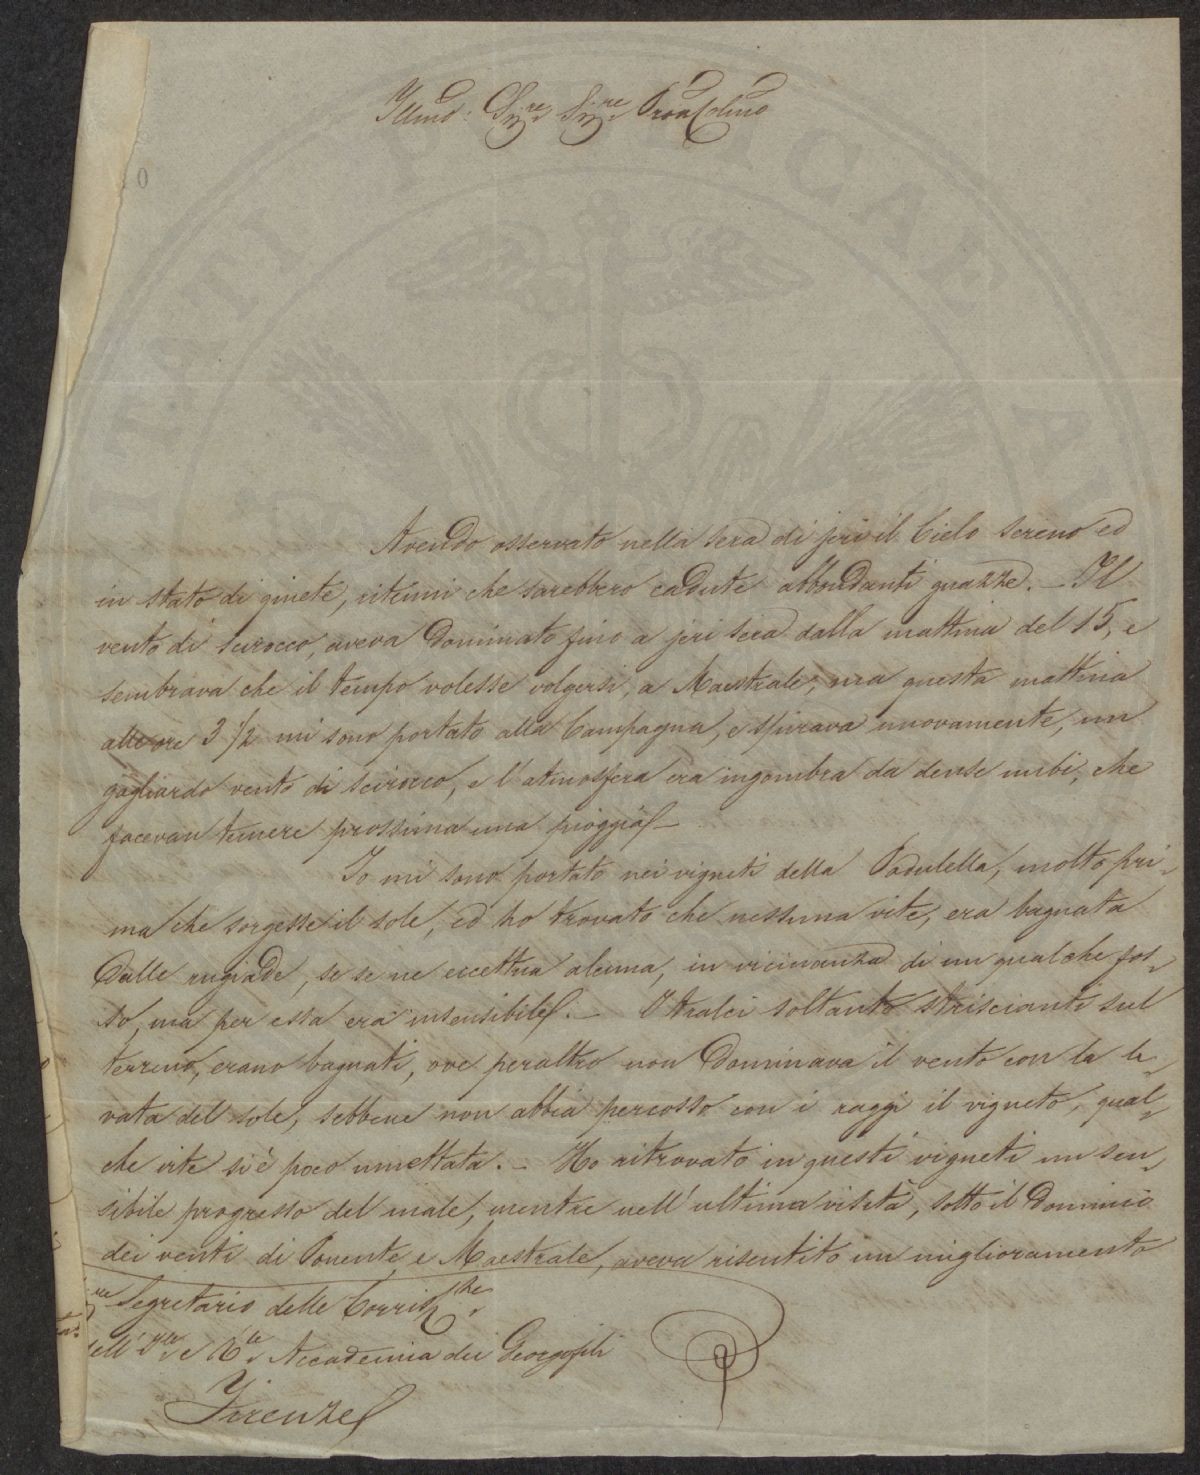 Illmo: Sigre Sigre Pron Colmo
Avendo osservato nella sera di jeri il Cielo sereno ed
in stato di quiete, ritenni che sarebbero cadute abbondanti guazze. – Il
vento di Scirocco, aveva dominato fino a jeri sera dalla mattina del 15, e
sembrava che il tempo volesse volgersi, a Maestrale; ma questa mattina
alle ore 3 1/2 mi sono portato alla Campagna, e spirava nuovamente, un
gagliardo vento di scirocco, e l'atmosfera era ingombra da dense nubi, che
facevan temere prossima una pioggia –
Io mi sono portato nei vigneti della Padulella, molto pri-
ma che sorgesse il sole, ed ho trovato che nessuna vite, era bagnata
dalle rugiade, se se ne eccettua alcuna, in vicinanza di un qualche fos-
so, ma per essa era insensibile. – I tralci soltanto striscianti sul
terreno, erano bagnati, ove peraltro non dominava il vento con la le-
vata del sole, sebbene non abbia percosso con i raggi il vigneto, qual-
che vite si è poco umettata. – Ho ritrovato in questi vigneti un sen-
sibile progresso del male, mentre nell'ultima visita, sotto il dominio
dei venti di Ponente, e Maestrale, aveva risentito un miglioramento
Segretario delle Corrispze
dell' I. e Rle Accademia dei Georgofili
Firenze